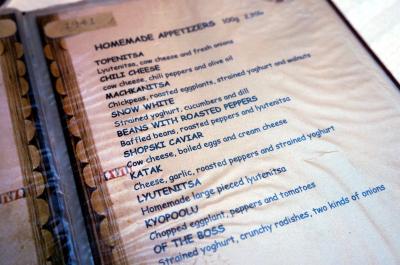 1941
HOMEMADE APPETIZERS 100g 2,95lv.
TOPENITSA
Lyutenitsa, cow cheese and fresh onions
CHILI CHEESE
cow cheese, chili peppers and olive oil
MACHKANITSA
Chickpeas, roasted eggplants, strained yoghurt and walnuts
SNOW WHITE
Strained yoghurt, cucumbers and dill
BEANS WITH ROASTED PEPPERS
Baffled beans, roasted peppers and lyutenitsa
SHOPSKI CAVIAR
Cow cheese, boiled eggs and cream cheese
KATAK
Cheese, garlic, roasted peppers and strained yoghurt
LYUTENITSA
Homemade large pieced lyutenitsa
KYOPOOLU
Chopped eggplant, peppers and tomatoes
OF THE BOSS
Strained yoghurt, crunchy radishes, two kinds of onions